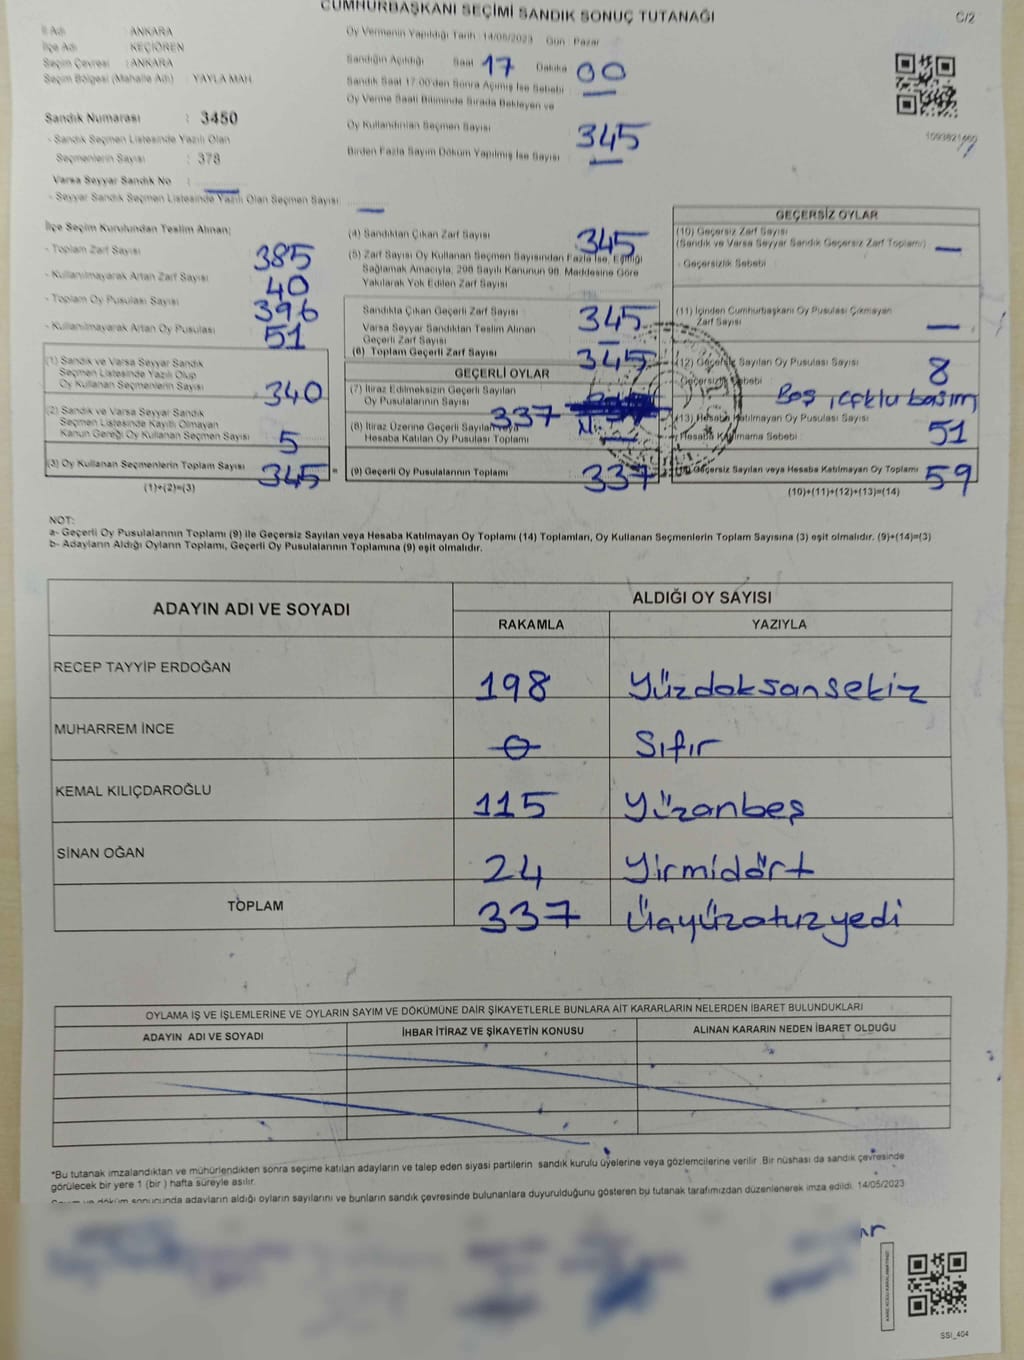 CUMHURBAŞKANI SEÇİMİ SANDIK SONUÇ TUTANAĞI
C/2
İl Adı : ANKARA
İlçe Adı : KEÇİÖREN
Seçim Çevresi : ANKARA
Seçim Bölgesi (Mahalle Adı) : YAYLA MAH
Sandık Numarası : 3450
- Sandık Seçmen Listesinde Yazılı Olan
Seçmenlerin Sayısı : 378
Varsa Seyyar Sandık No :
- Seyyar Sandık Seçmen Listesinde Yazılı Olan Seçmen Sayısı
Oy Vermenin Yapıldığı Tarih : 14/05/2023 Gün : Pazar
Sandığın Açıldığı Saat 17 Dakika 00
Sandık Saat 17.00'den Sonra Açılmış İse Sebebi :
Oy Verme Saati Bitiminde Sırada Bekleyen ve
Oy Kullandırılan Seçmen Sayısı 345
Birden Fazla Sayım Döküm Yapılmış İse Sayısı : —
İlçe Seçim Kurulundan Teslim Alınan;
- Toplam Zarf Sayısı 385
- Kullanılmayarak Artan Zarf Sayısı 40
- Toplam Oy Pusulası Sayısı 396
- Kullanılmayarak Artan Oy Pusulası 51
(1) Sandık ve Varsa Seyyar Sandık
Seçmen Listesinde Yazılı Olup
Oy Kullanan Seçmenlerin Sayısı 340
(2) Sandık ve Varsa Seyyar Sandık
Seçmen Listesinde Kayıtlı Olmayan
Kanun Gereği Oy Kullanan Seçmen Sayısı 5
(3) Oy Kullanan Seçmenlerin Toplam Sayısı 345 =
(1)+(2)=(3)
(4) Sandıktan Çıkan Zarf Sayısı 345
(5) Zarf Sayısı Oy Kullanan Seçmen Sayısından Fazla İse, Eşitliği
Sağlamak Amacıyla, 298 Sayılı Kanunun 98. Maddesine Göre
Yakılarak Yok Edilen Zarf Sayısı
Sandıkta Çıkan Geçerli Zarf Sayısı 345
Varsa Seyyar Sandıktan Teslim Alınan
Geçerli Zarf Sayısı —
(6) Toplam Geçerli Zarf Sayısı 345
GEÇERLİ OYLAR
(7) İtiraz Edilmeksizin Geçerli Sayılan
Oy Pusulalarının Sayısı 337
(8) İtiraz Üzerine Geçerli Sayılan veya
Hesaba Katılan Oy Pusulası Toplamı —
(9) Geçerli Oy Pusulalarının Toplamı 337
GEÇERSİZ OYLAR
(10) Geçersiz Zarf Sayısı
(Sandık ve Varsa Seyyar Sandık Geçersiz Zarf Toplamı) —
- Geçersizlik Sebebi
(11) İçinden Cumhurbaşkanı Oy Pusulası Çıkmayan
Zarf Sayısı —
(12) Geçersiz Sayılan Oy Pusulası Sayısı 8
Geçersizlik Sebebi Boş,
(13) Hesaba Katılmayan Oy Pusulası Sayısı 51
- Hesaba Katılmama Sebebi :
(14) Geçersiz Sayılan veya Hesaba Katılmayan Oy Toplamı 59
(10)+(11)+(12)+(13)=(14)
NOT:
a- Geçerli Oy Pusulalarının Toplamı (9) ile Geçersiz Sayılan veya Hesaba Katılmayan Oy Toplamı (14) Toplamları, Oy Kullanan Seçmenlerin Toplam Sayısına (3) eşit olmalıdır. (9)+(14)=(3)
b- Adayların Aldığı Oyların Toplamı, Geçerli Oy Pusulalarının Toplamına (9) eşit olmalıdır.
ADAYIN ADI VE SOYADI
ALDIĞI OY SAYISI
RAKAMLA YAZIYLA
RECEP TAYYİP ERDOĞAN 198 Yüzdoksansekiz
MUHARREM İNCE 0 Sıfır
KEMAL KILIÇDAROĞLU 115 Yüzonbeş
SİNAN OĞAN 24 Yirmidört
TOPLAM 337 Üçyüzotuzyedi
OYLAMA İŞ VE İŞLEMLERİNE VE OYLARIN SAYIM VE DÖKÜMÜNE DAİR ŞİKAYETLERLE BUNLARA AİT KARARLARIN NELERDEN İBARET BULUNDUKLARI
ADAYIN ADI VE SOYADI İHBAR İTİRAZ VE ŞİKAYETİN KONUSU ALINAN KARARIN NEDEN İBARET OLDUĞU
*Bu tutanak imzalandıktan ve mühürlendikten sonra seçime katılan adayların ve talep eden siyasi partilerin sandık kurulu üyelerine veya gözlemcilerine verilir. Bir nüshası da sandık çevresinde
görülecek bir yere 1 (bir) hafta süreyle asılır.
Sayım ve döküm sonucunda adayların aldığı oyların sayılarını ve bunların sandık çevresinde bulunanlara duyurulduğunu gösteren bu tutanak tarafımızdan düzenlenerek imza edildi. 14/05/2023
SSI_404